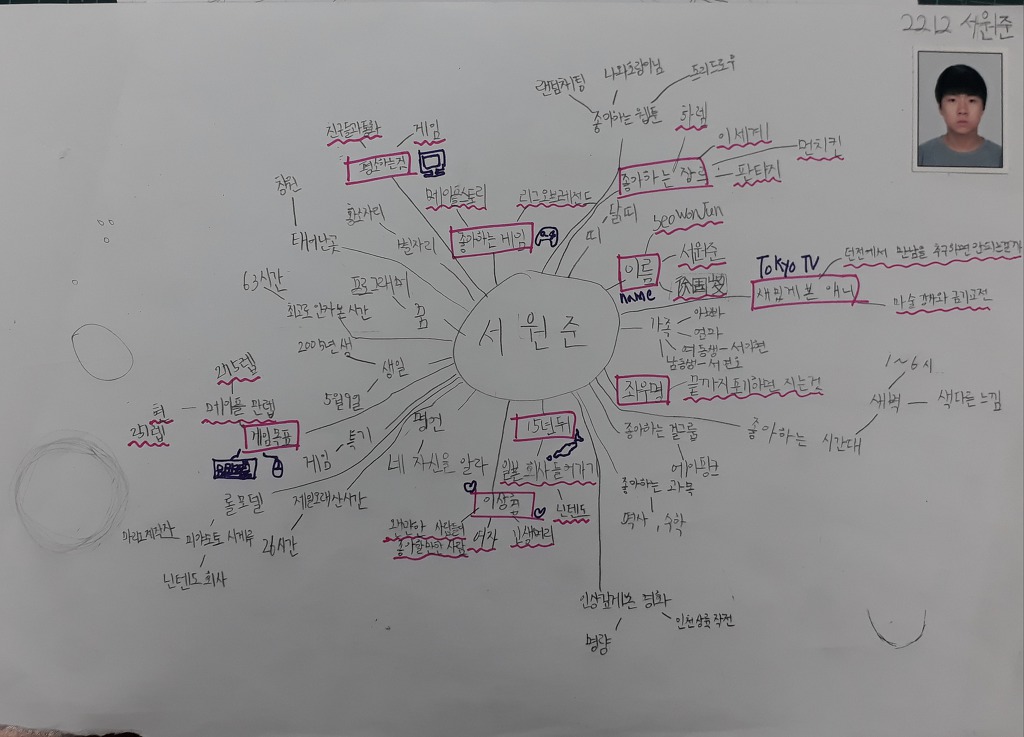 2212 서원준
랜덤채팅
나와호랑이님
프리드로우
좋아하는 웹툰
하렘
이세계
먼치킨
판타지
좋아하는 장르
친구들과통화
게임
평소하는것
메이플스토리
리그오브레전드
좋아하는 게임
닭띠
띠
창원
태어난곳
황소자리
별자리
SeoWonJun
서원준
이름
name
Tokyo TV
던전에서 만남을 추구하면 안되는걸까
재밌게본 애니
마술
63시간
최고로 안자본시간
프로그래머
꿈
서 원 준
가족
아빠
엄마
여동생
남동생
2005년생
생일
5월9일
좌우명
끝까지 포기하면 지는것
1~6시
새벽
색다른느낌
좋아하는 시간대
275렙
메이플 만렙
현
251렙
게임목표
특기
게임
명언
네 자신을 알라
15년뒤
일본 회사들어가기
닌텐도
좋아하는 걸그룹
에이핑크
좋아하는 과목
역사, 수학
롤모델
미야모토 시게루
닌텐도 회사
26시간
이상형
좋아할만한 사람
여자
긴생머리
인상깊게본 영화
명량
인천상륙작전